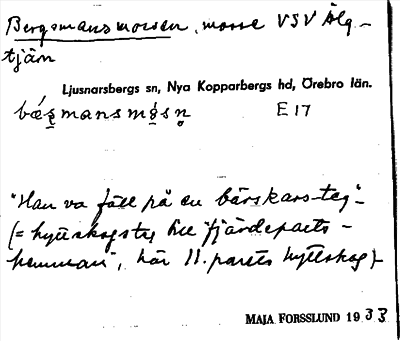 Bergsmansmossen, mosse VSV Älg-
tjärn
Ljusnarsbergs sn, Nya Kopparbergs hd, Örebro län.
E 17
"Han va fäll på en bärskars-teg"
(= hyttskogsteg till "fjärdeparts-
hemman", här 11. parets hyttskog)
MAJA FORSSLUND 1933